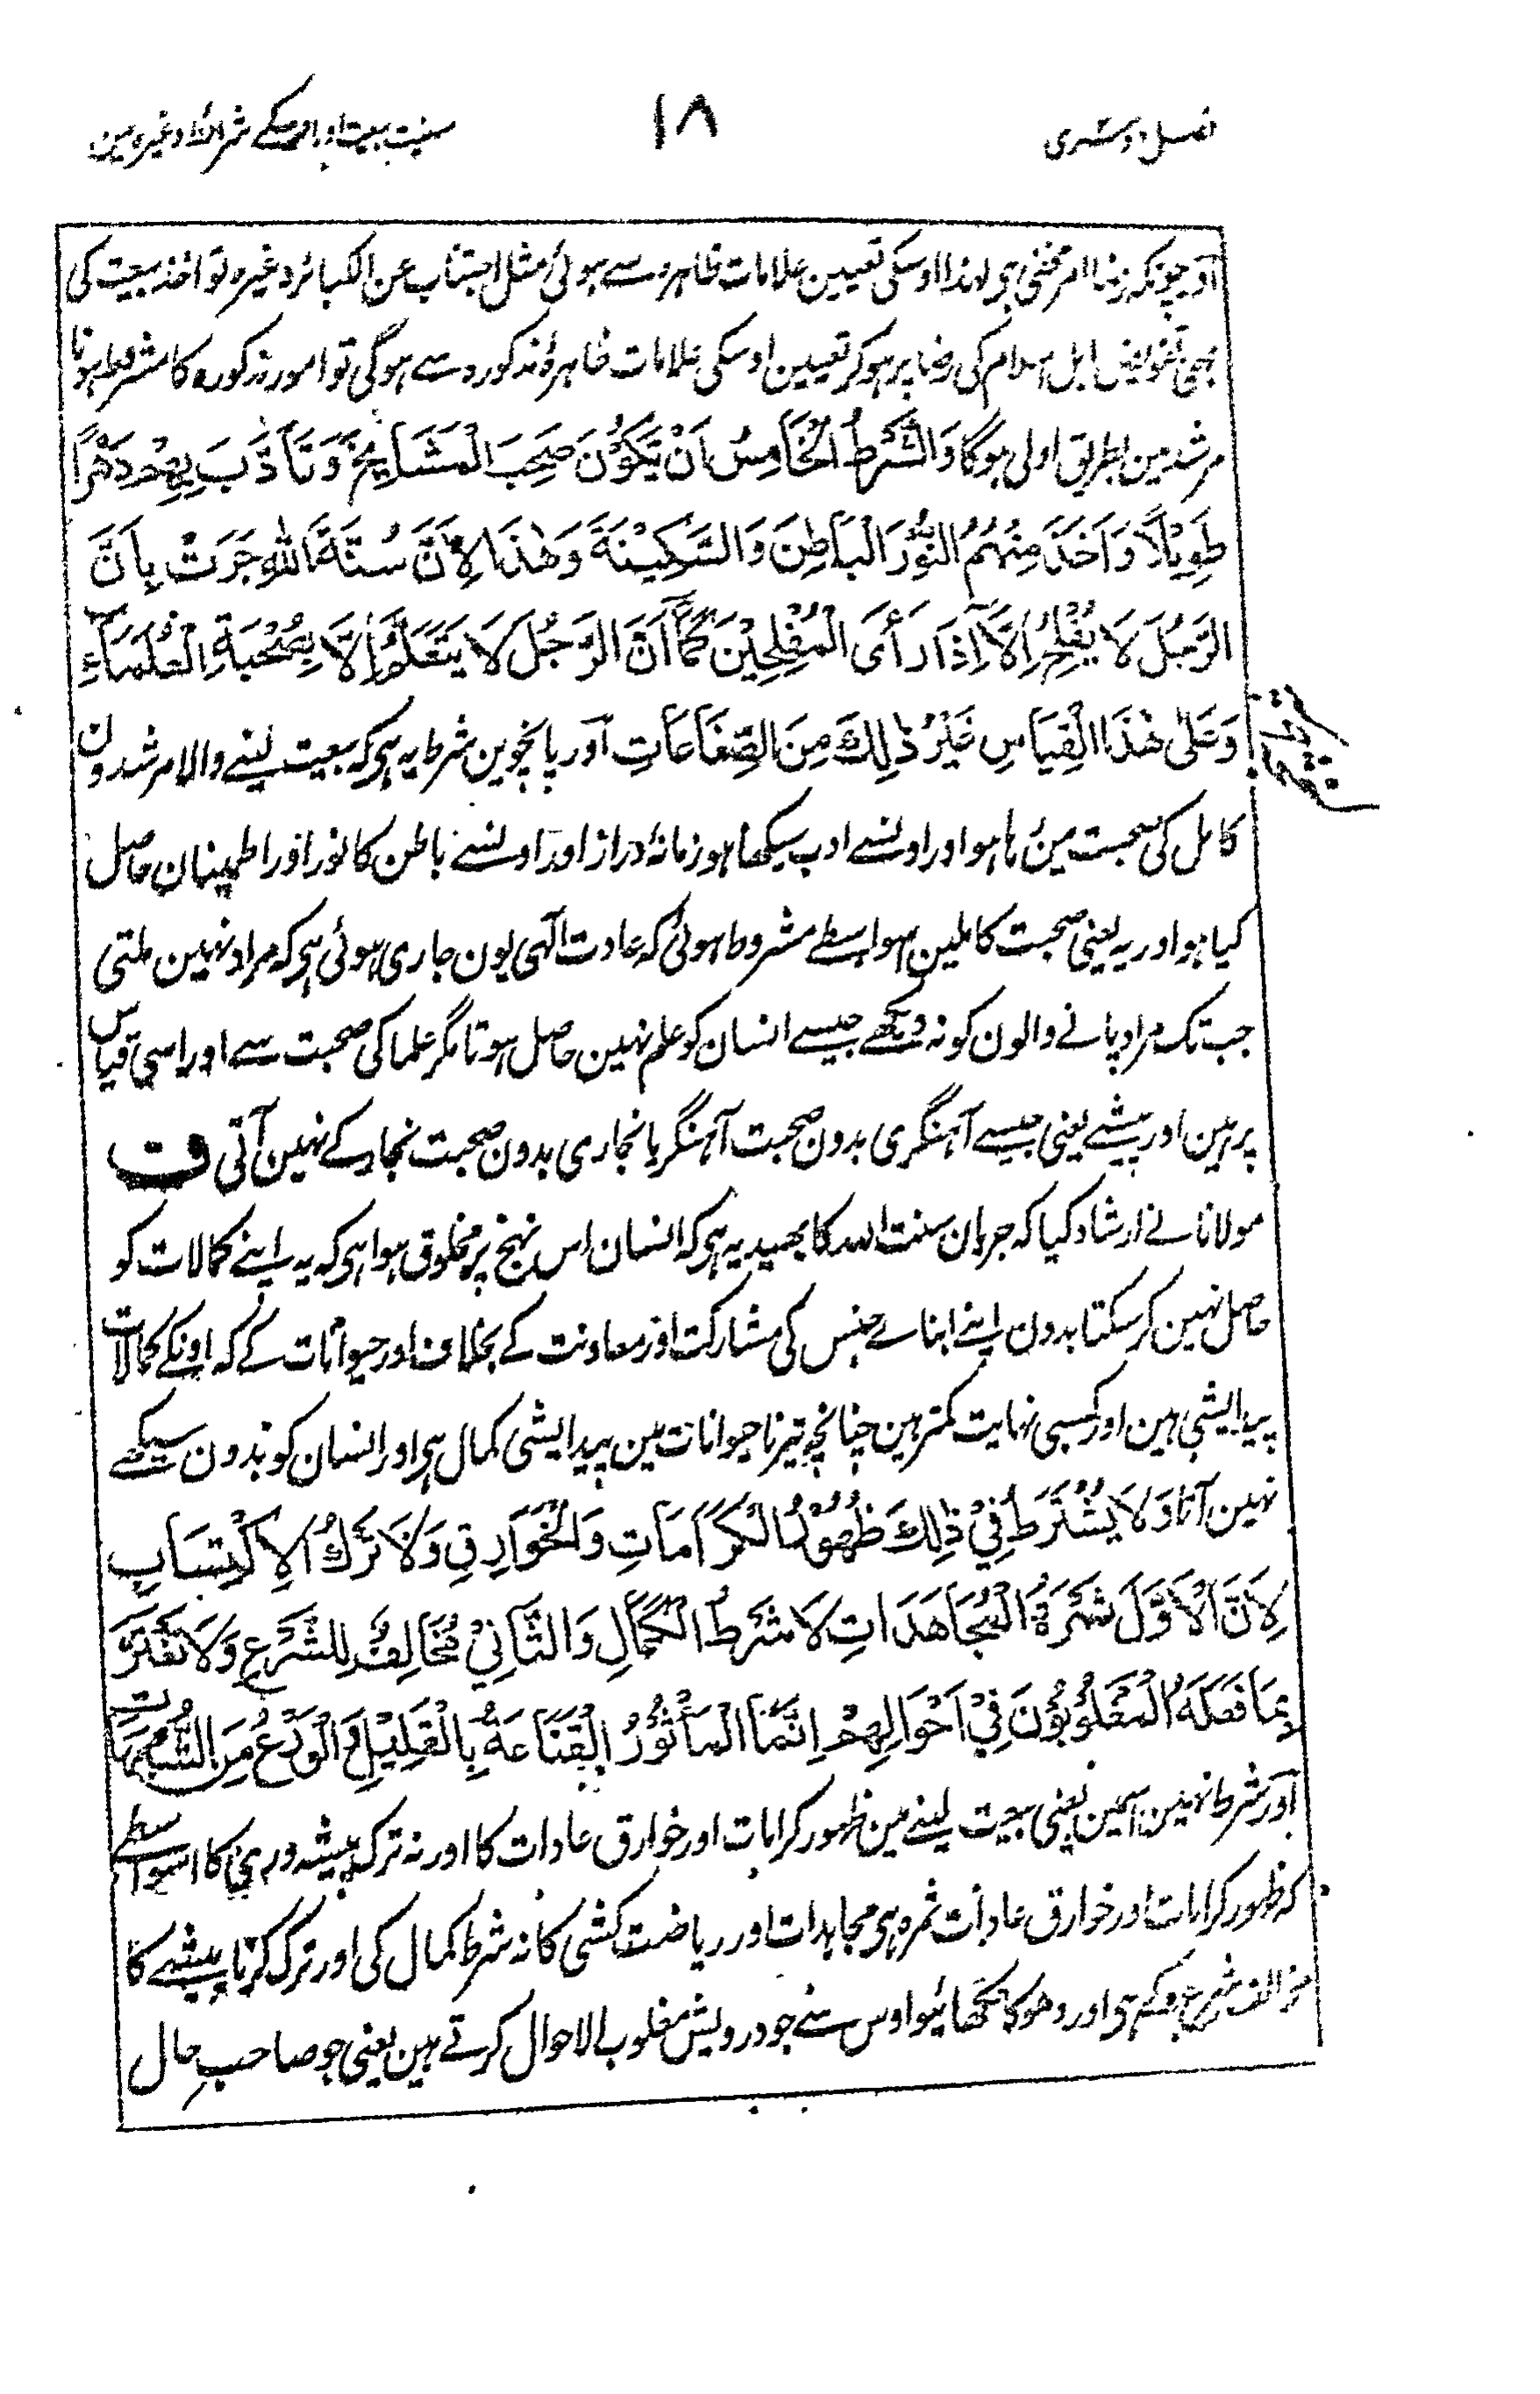 فصل دوسری
۱۸
سنیت بیعت اور اوسکے شرائط وغیرہ مین
اور چونکہ رضا امر مخفی ہی لہذا اوسکی تعیین علامات ظاہرہ سے ہوئی مثل اجتناب عن الکبائر وغیرہ تو اخذ بیعت کی
بھی تفویض اہل اسلام کی رضا پر ہوکر تعیین اوسکی علامات ظاہرہ مذکورہ سے ہوگی تو امور مذکورہ کا مشروط ہونا
مرشد مین بطریق اولی ہوگا وَالشَّرْطُ الْخَامِسُ اَنْ یَّکُوْنَ صَحِبَ الْمَشَایِخَ وَتَاَدَّبَ بِهِمْ دَهْرًا
طَوِیْلًا وَاَخَذَ مِنْهُمُ النُّوْرَ الْبَاطِنَ وَالسَّکِیْنَةَ وَهٰذَا لِاَنَّ سُنَّةَ اللّٰهِ جَرَتْ بِاَنَّ
الرَّجُلَ لَا یُفْلِحُ اِلَّا اِذَا رَأَی الْمُفْلِحِیْنَ کَمَا اَنَّ الرَّجُلَ لَا یَتَعَلَّمُ اِلَّا بِصُحْبَةِ الْعُلَمَاءِ
وَعَلٰی هٰذَا الْقِیَاسِ غَیْرُ ذٰلِكَ مِنَ الصِّنَاعَاتِ اور پانچوین شرط یہ ہی کہ بیعت لینے والا مرشدون
کامل کی صحبت مین رہا ہو اور اونسے ادب سیکھا ہو زمانۂ دراز اور اونسے باطن کا نور اور اطمینان حاصل
کیا ہو اور یہ یعنی صحبت کاملین اسواسطے مشروط ہوئی کہ عادت الٰہی یون جاری ہوئی ہی کہ مراد نہین ملتی
جب تک مراد پانے والون کو نہ دیکھے جیسے انسان کو علم نہین حاصل ہوتا مگر علما کی صحبت سے اور اسی قیاس
پر ہین اور پیشے یعنی جیسے آہنگری بدون صحبت آہنگر یا نجاری بدون صحبت نجار کے نہین آتی ف
مولانا نے ارشاد کیا کہ جریان سنت اللہ کا بھید یہ ہی کہ انسان اس نہج پر مخلوق ہوا ہی کہ یہ اپنے کمالات کو
حاصل نہین کرسکتا بدون اپنے ابناے جنس کی مشارکت اور معاونت کے بخلاف اور حیوانات کے کہ اونکے کمالات
پیدایشی ہین اور کسبی نہایت کمتر ہین چنانچہ تیرنا حیوانات مین پیدایشی کمال ہی اور انسان کو بدون سیکھے
نہین آتا وَلَا یُشْتَرَطُ فِیْ ذٰلِكَ ظُهُوْرُ الْکَرَامَاتِ وَالْخَوَارِقِ وَلَا تَرْكُ الْاِکْتِسَابِ
لِاَنَّ الْاَوَّلَ ثَمَرَةُ الْمُجَاهَدَاتِ لَا شَرْطُ الْکَمَالِ وَالثَّانِیْ مُخَالِفٌ لِلشَّرْعِ وَلَا تَغْتَرَّ
بِمَا فَعَلَهُ الْمَغْلُوْبُوْنَ فِیْ اَحْوَالِهِمْ اِنَّمَا الْمَأْثُوْرُ الْقَنَاعَةُ بِالْقَلِیْلِ وَالْوَرَعُ مِنَ الشُّبُهَاتِ
اور شرط نہین اسمین یعنی بیعت لینے مین ظہور کرامات اور خوارق عادات کا اور نہ ترک پیشہ وری کا اسواسطے
کہ ظہور کرامات اور خوارق عادات ثمرہ ہی مجاہدات اور ریاضت کشی کا نہ شرط کمال کی اور ترک کرنا پیشے کا
مخالف شرع ہی اور دھوکا نکھائیو اوس سے جو درویش مغلوب الاحوال کرتے ہین یعنی جو صاحبِ حال